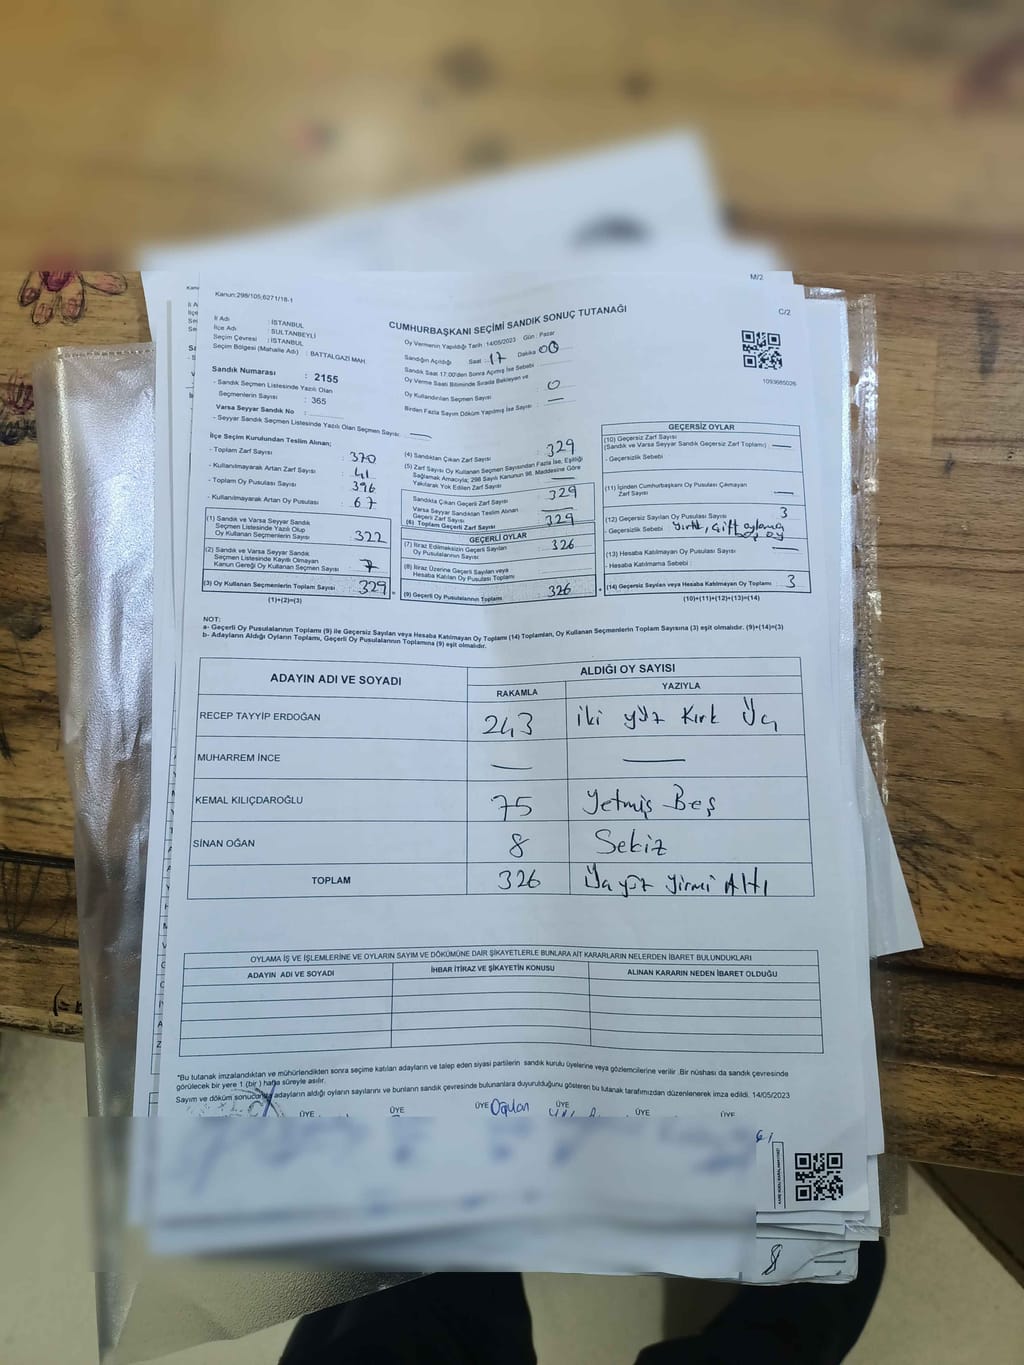 M/2
C/2
Kanun:298/105;6271/18-1
CUMHURBAŞKANI SEÇİMİ SANDIK SONUÇ TUTANAĞI
İl Adı : İSTANBUL
İlçe Adı : SULTANBEYLİ
Seçim Çevresi : İSTANBUL
Seçim Bölgesi (Mahalle Adı) : BATTALGAZİ MAH.
Sandık Numarası : 2155
- Sandık Seçmen Listesinde Yazılı Olan
Seçmenlerin Sayısı : 365
Varsa Seyyar Sandık No :
- Seyyar Sandık Seçmen Listesinde Yazılı Olan Seçmen Sayısı: —
Oy Vermenin Yapıldığı Tarih :14/05/2023 Gün : Pazar
Sandığın Açıldığı Saat : 17 Dakika : 00
Sandık Saat 17:00'den Sonra Açılmış İse Sebebi :
Oy Verme Saati Bitiminde Sırada Bekleyen ve
Oy Kullandırılan Seçmen Sayısı : 0
Birden Fazla Sayım Döküm Yapılmış İse Sayısı : —
1093685026
İlçe Seçim Kurulundan Teslim Alınan;
- Toplam Zarf Sayısı : 370
- Kullanılmayarak Artan Zarf Sayısı : 41
- Toplam Oy Pusulası Sayısı : 396
- Kullanılmayarak Artan Oy Pusulası : 67
(1) Sandık ve Varsa Seyyar Sandık
Seçmen Listesinde Yazılı Olup
Oy Kullanan Seçmen Sayısı : 322
(2) Sandık ve Varsa Seyyar Sandık
Seçmen Listesinde Kayıtlı Olmayan
Kanun Gereği Oy Kullanan Seçmen Sayısı : 7
(3) Oy Kullanan Seçmenlerin Toplam Sayısı : 329
(1)+(2)=(3)
(4) Sandıktan Çıkan Zarf Sayısı : 329
(5) Zarf Sayısı Oy Kullanan Seçmen Sayısından Fazla İse, Eşitliği
Sağlamak Amacıyla; 298 Sayılı Kanunun 98. Maddesine Göre
Yakılarak Yok Edilen Zarf Sayısı : —
Sandıkta Çıkan Geçerli Zarf Sayısı : 329
Varsa Seyyar Sandıktan Teslim Alınan
Geçerli Zarf Sayısı : —
(6) Toplam Geçerli Zarf Sayısı : 329
GEÇERLİ OYLAR
(7) İtiraz Edilmeksizin Geçerli Sayılan
Oy Pusulalarının Sayısı : 326
(8) İtiraz Üzerine Geçerli Sayılan veya
Hesaba Katılan Oy Pusulası Toplamı :
(9) Geçerli Oy Pusulalarının Toplamı : 326
GEÇERSİZ OYLAR
(10) Geçersiz Zarf Sayısı
(Sandık ve Varsa Seyyar Sandık Geçersiz Zarf Toplamı) : —
- Geçersizlik Sebebi :
(11) İçinden Cumhurbaşkanı Oy Pusulası Çıkmayan
Zarf Sayısı : —
(12) Geçersiz Sayılan Oy Pusulası Sayısı : 3
- Geçersizlik Sebebi : Yırtık, Çift oylama
boş oy
(13) Hesaba Katılmayan Oy Pusulası Sayısı : —
- Hesaba Katılmama Sebebi :
(14) Geçersiz Sayılan veya Hesaba Katılmayan Oy Toplamı : 3
(10)+(11)+(12)+(13)=(14)
NOT:
a- Geçerli Oy Pusulalarının Toplamı (9) ile Geçersiz Sayılan veya Hesaba Katılmayan Oy Toplamı (14) Toplamları, Oy Kullanan Seçmenlerin Toplam Sayısına (3) eşit olmalıdır. (9)+(14)=(3)
b- Adayların Aldığı Oyların Toplamı, Geçerli Oy Pusulalarının Toplamına (9) eşit olmalıdır.
ADAYIN ADI VE SOYADI
ALDIĞI OY SAYISI
RAKAMLA YAZIYLA
RECEP TAYYİP ERDOĞAN 243 iki yüz Kırk Üç
MUHARREM İNCE — —
KEMAL KILIÇDAROĞLU 75 Yetmiş Beş
SİNAN OĞAN 8 Sekiz
TOPLAM 326 Üç yüz yirmi Altı
OYLAMA İŞ VE İŞLEMLERİNE VE OYLARIN SAYIM VE DÖKÜMÜNE DAİR ŞİKAYETLERLE BUNLARA AİT KARARLARIN NELERDEN İBARET BULUNDUKLARI
ADAYIN ADI VE SOYADI İHBAR İTİRAZ VE ŞİKAYETİN KONUSU ALINAN KARARIN NEDEN İBARET OLDUĞU
*Bu tutanak imzalandıktan ve mühürlendikten sonra seçime katılan adayların ve talep eden siyasi partilerin sandık kurulu üyelerine veya gözlemcilerine verilir .Bir nüshası da sandık çevresinde
görülecek bir yere 1 (bir ) hafta süreyle asılır.
Sayım ve döküm sonucunda adayların aldığı oyların sayılarını ve bunların sandık çevresinde bulunanlara duyurulduğunu gösteren bu tutanak tarafımızdan düzenlenerek imza edildi. 14/05/2023
ÜYE ÜYE ÜYE Oğulcan ÜYE ÜYE ÜYE
8